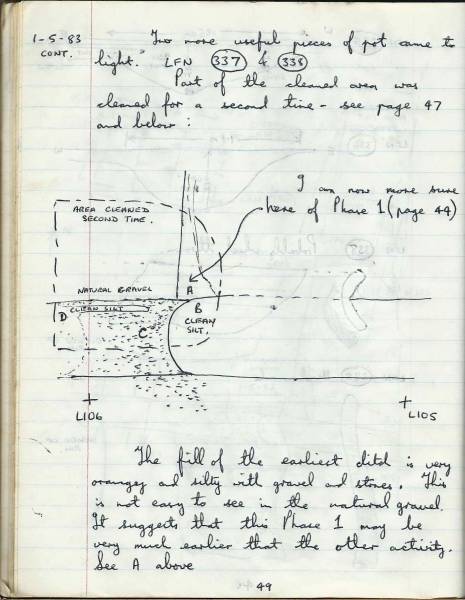 1-5-83 Two more useful pieces of pot came to
CONT. light. LFN 337 & 338
Part of the cleaned area was
cleaned for a second time - see page 47
and below :
I am now more sure
here of Phase 1 (page 44)
AREA CLEANED
SECOND TIME.
NATURAL GRAVEL
A
CLEAN SILT
B
CLEAN
SILT.
D
C
L106
L105
The fill of the earliest ditch is very
orangey and silty with gravel and stones. This
is not easy to see in the natural gravel.
It suggests that this Phase 1 may be
very much earlier that the other activity.
See A above
49